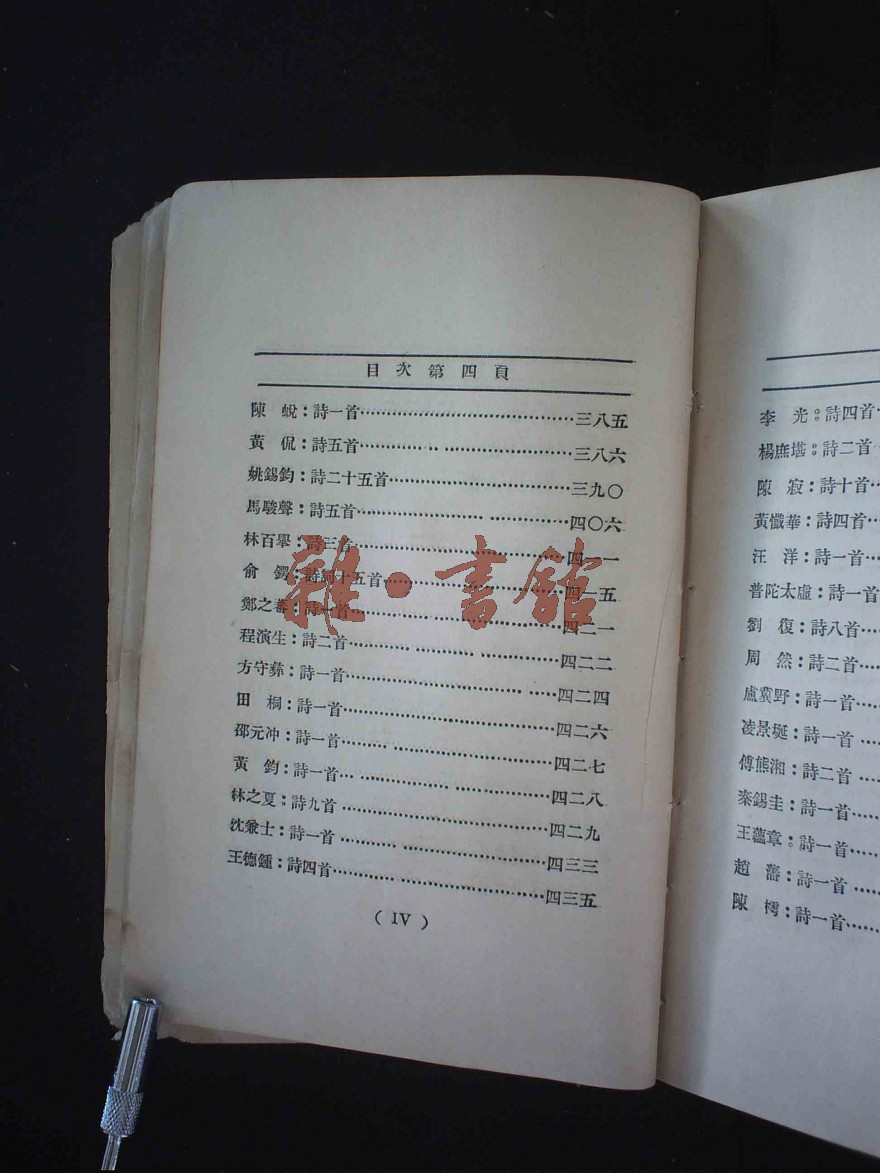 目次第四頁
陳蛻：詩一首……三八五
黃侃：詩五首……三八六
姚錫鈞：詩二十五首……三九〇
馬駿聲：詩五首……四〇六
林百舉：詩三首……四一一
俞鍔：詩詞十五首……四一五
鄭之蕃：詩一首……四二一
程演生：詩二首……四二二
方守彝：詩一首……四二四
田桐：詩一首……四二六
邵元冲：詩一首……四二七
黃鈞：詩一首……四二八
林之夏：詩九首……四二九
沈兼士：詩一首……四三三
王德鍾：詩四首……四三五
（IV）
李光：詩四首
楊庶堪：詩二首
陳寂：詩十首
黃懺華：詩四首
汪洋：詩一首
普陀太虛：詩一首
劉復：詩八首
周然：詩二首
盧冀野：詩一首
凌景埏：詩一首
傅熊湘：詩二首
秦錫圭：詩一首
王蘊章：詩一首
趙藩：詩一首
陳樗：詩一首
雜·書館